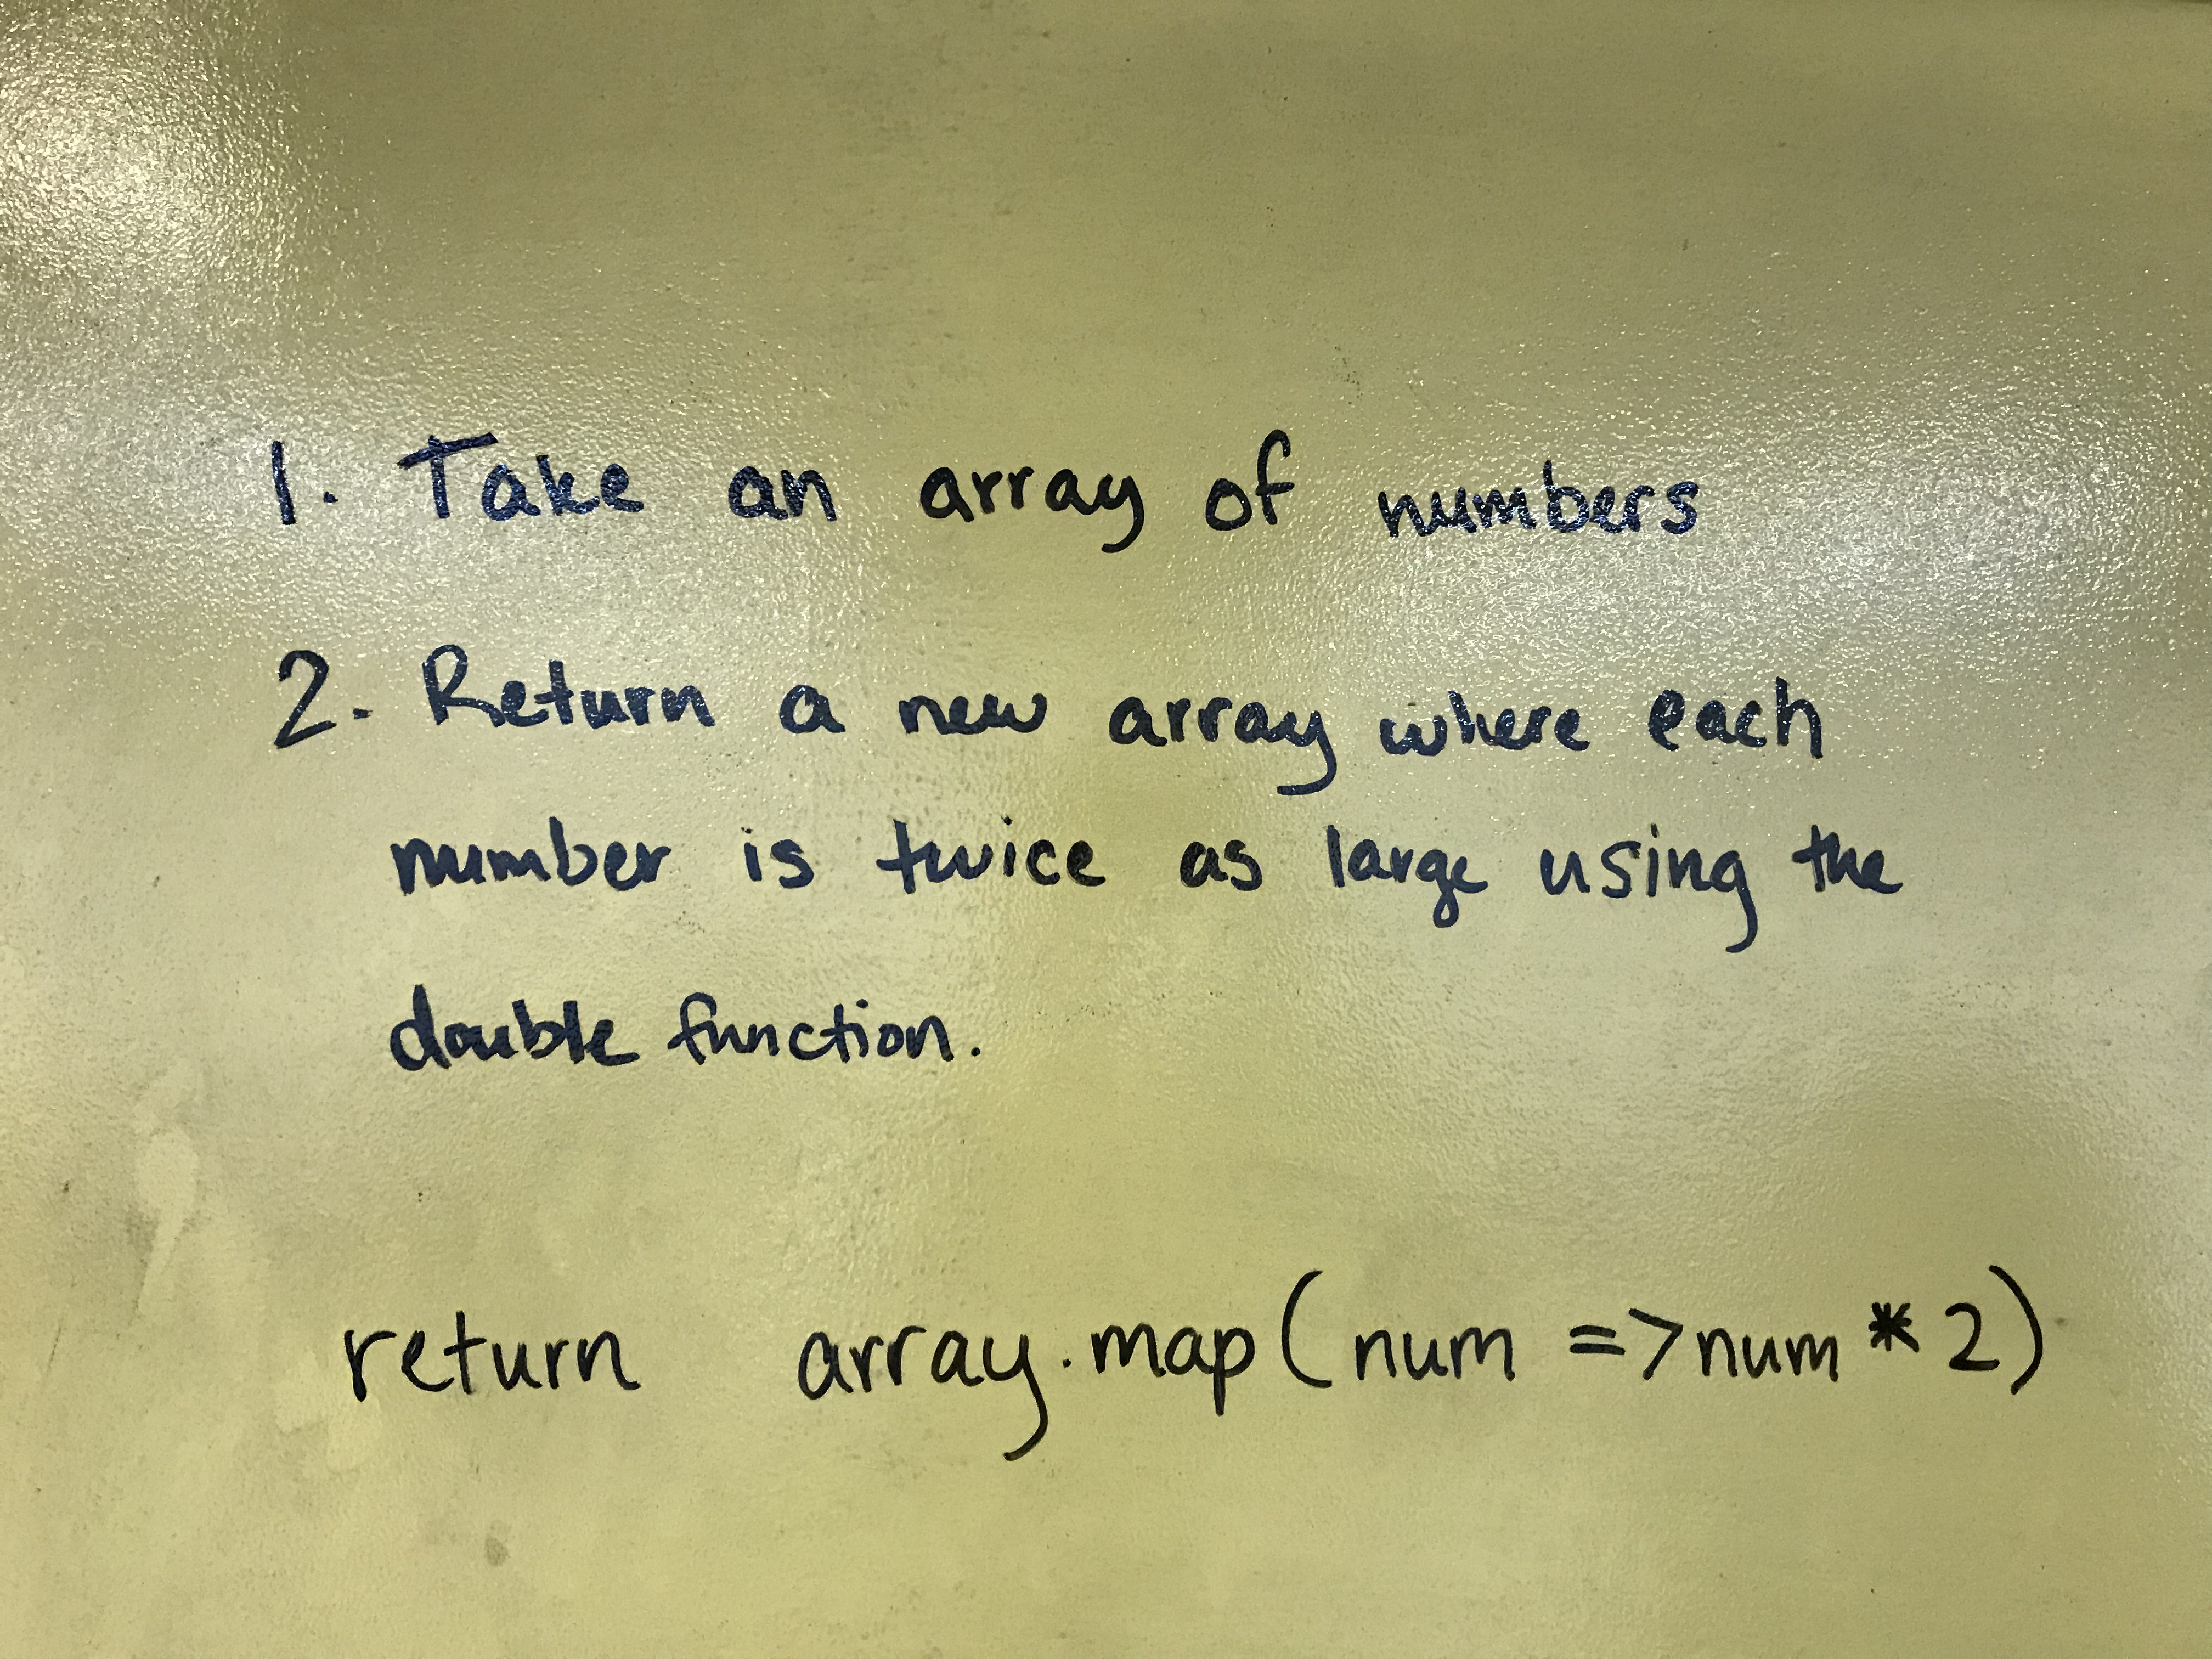 1. Take an array of numbers
2. Return a new array where each
number is twice as large using the
double function.
return array.map(num =>num * 2)